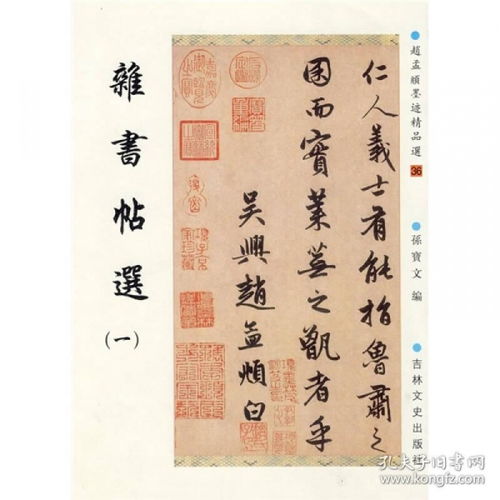 趙孟頫墨迹精品選 36
孫寶文 編
吉林文史出版社
仁人義士有能指魯肅之
囷而實萊蕪之甑者乎
吳興趙孟頫白
雜書帖選
(一)
孔夫子旧书网
www.kongfz.com